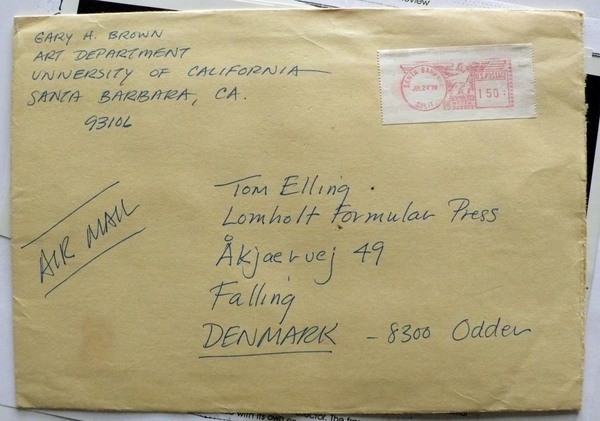 GARY H. BROWN
ART DEPARTMENT
UNIVERSITY OF CALIFORNIA
SANTA BARBARA, CA.
93106
SANTA BARBARA
JUL 24 '78
CALIF.
U.S. POSTAGE
1 50
AIR MAIL
Tom Elling.
Lomholt Formular Press
Åkjaervej 49
Falling
DENMARK - 8300 Odder